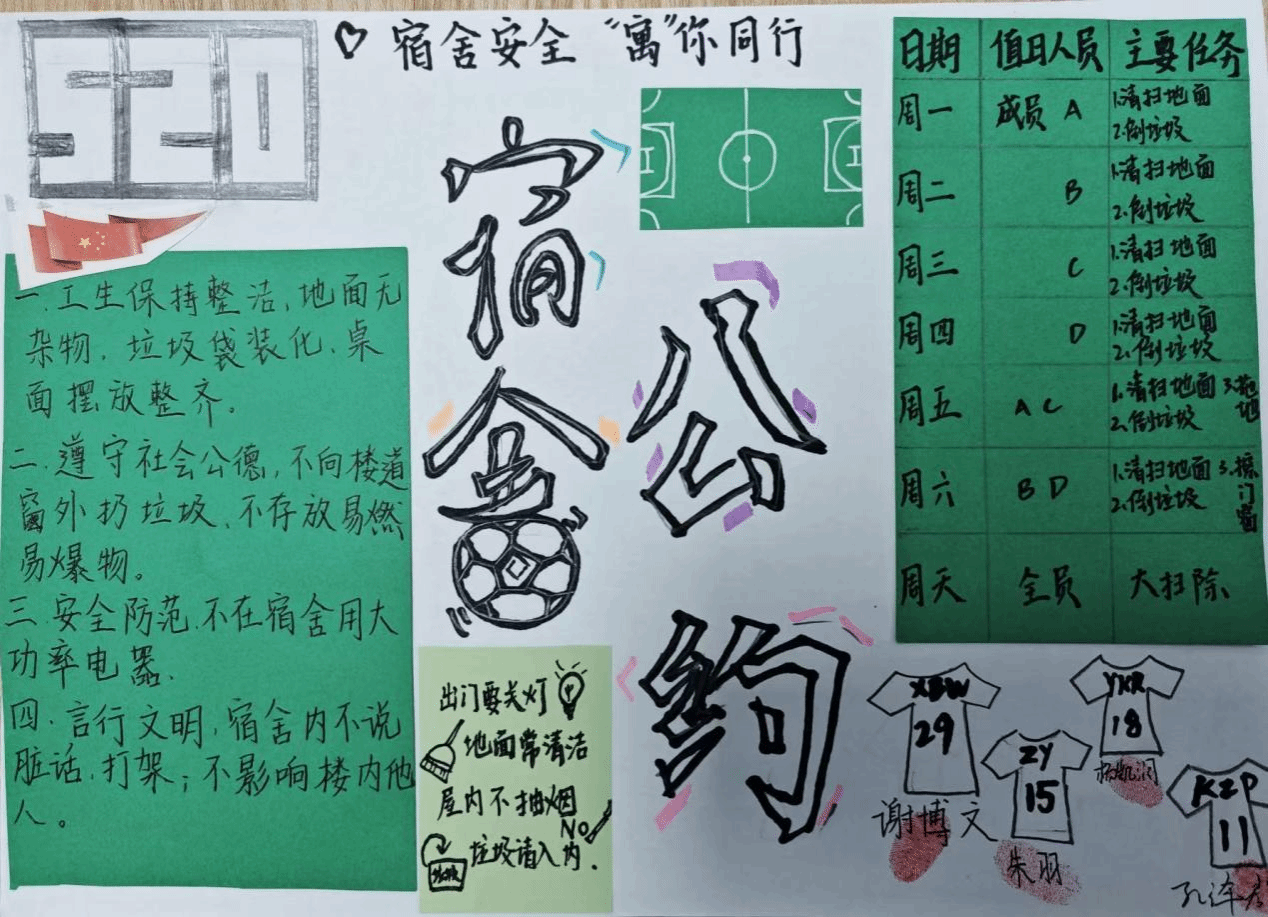 520
宿舍安全 “寓”你同行
宿舍
公约
一.卫生保持整洁,地面无
杂物,垃圾袋装化,桌
面摆放整齐。
二.遵守社会公德,不向楼道
窗外扔垃圾,不存放易燃
易爆物。
三.安全防范.不在宿舍用大
功率电器.
四.言行文明,宿舍内不说
脏话,打架;不影响楼内他
人。
出门要关灯
地面常清洁
屋内不抽烟
NO
垃圾请入内.
垃圾
日期 值日人员 主要任务
周一 成员 A 1.清扫地面
2.倒垃圾
周二 B 1.清扫地面
2.倒垃圾
周三 C 1.清扫地面
2.倒垃圾
周四 D 1.清扫地面
2.倒垃圾
周五 A C 1.清扫地面 3.拖地
2.倒垃圾
周六 B D 1.清扫地面 3.擦门窗
2.倒垃圾
周天 全员 大扫除
XBW
29
谢博文
ZY
15
朱羽
YKR
18
杨凯润
KZP
11